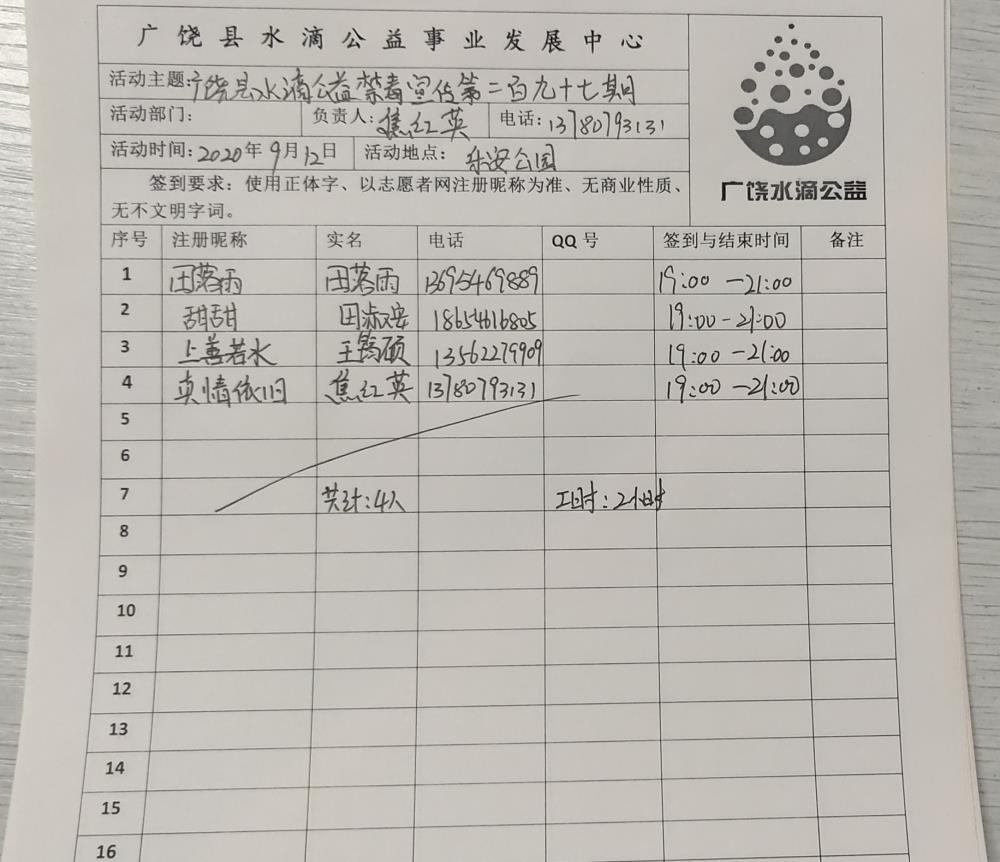 广饶县水滴公益事业发展中心
活动主题:广饶县水滴公益禁毒宣传第二百九十七期
活动部门: 负责人:焦红英 电话:13780793131
活动时间:2020年9月12日 活动地点:乐安公园
签到要求：使用正体字、以志愿者网注册昵称为准、无商业性质、
无不文明字词。
广饶水滴公益
序号 注册昵称 实名 电话 QQ号 签到与结束时间 备注
1 田落雨 田落雨 13695469889 19:00—21:00
2 甜甜 田淑安 18654616805 19:00-21:00
3 上善若水 王 硕 13562279909 19:00—21:00
4 真情依旧 焦红英 13780793131 19:00—21:00
5
6
7 共计:4人 工时:2小时
8
9
10
11
12
13
14
15
16